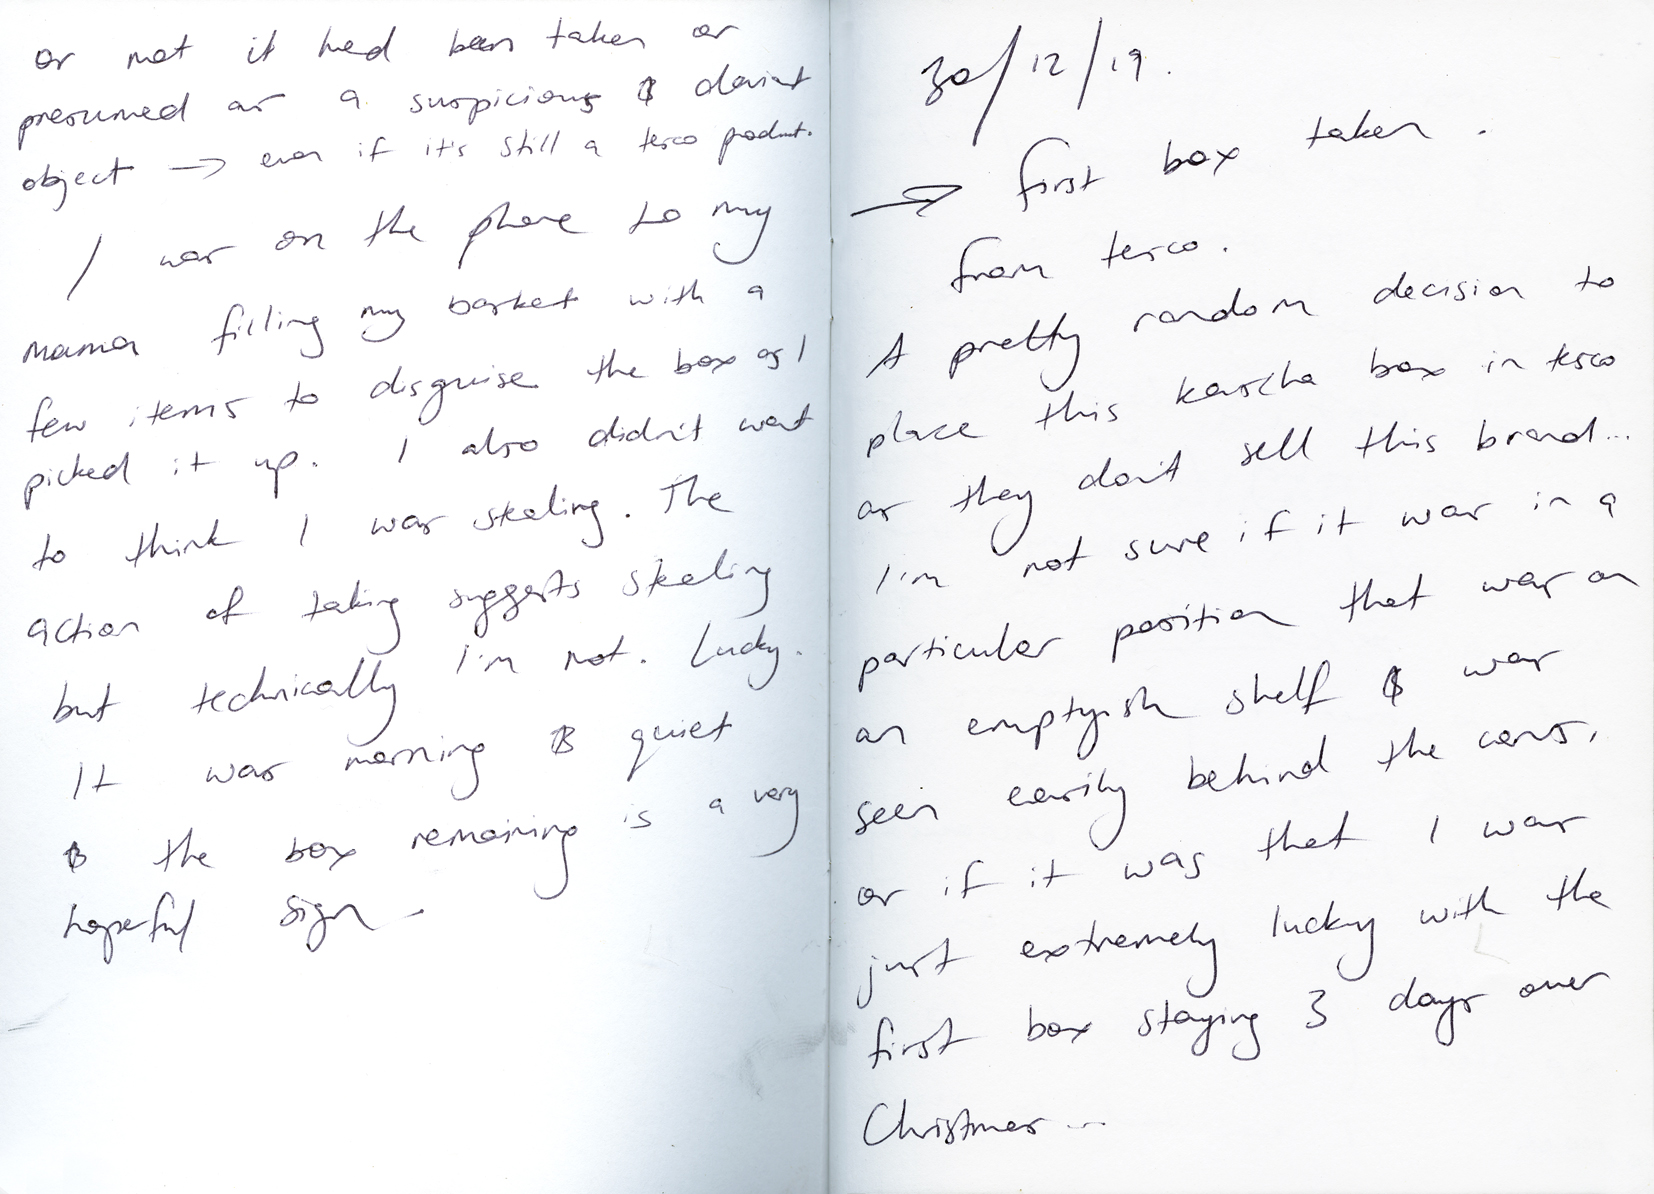 or not it had been taken or
presumed as a suspicious & deviant
object → even if it's still a tesco product.
I was on the phone to my
mama filling my basket with a
few items to disguise the box as I
picked it up. I also didn't want
to think I was stealing. The
action of taking suggests stealing
but technically I'm not. Lucky.
It was morning & quiet
& the box remaining is a very
hopeful sign –
30/12/19.
→ first box taken.
from tesco.
A pretty random decision to
place this kascha box in tesco
as they don't sell this brand...
I'm not sure if it was in a
particular position that was on
an emptyish shelf & was
seen easily behind the cans,
or if it was that I was
just extremely lucky with the
first box staying 3 days over
Christmas...